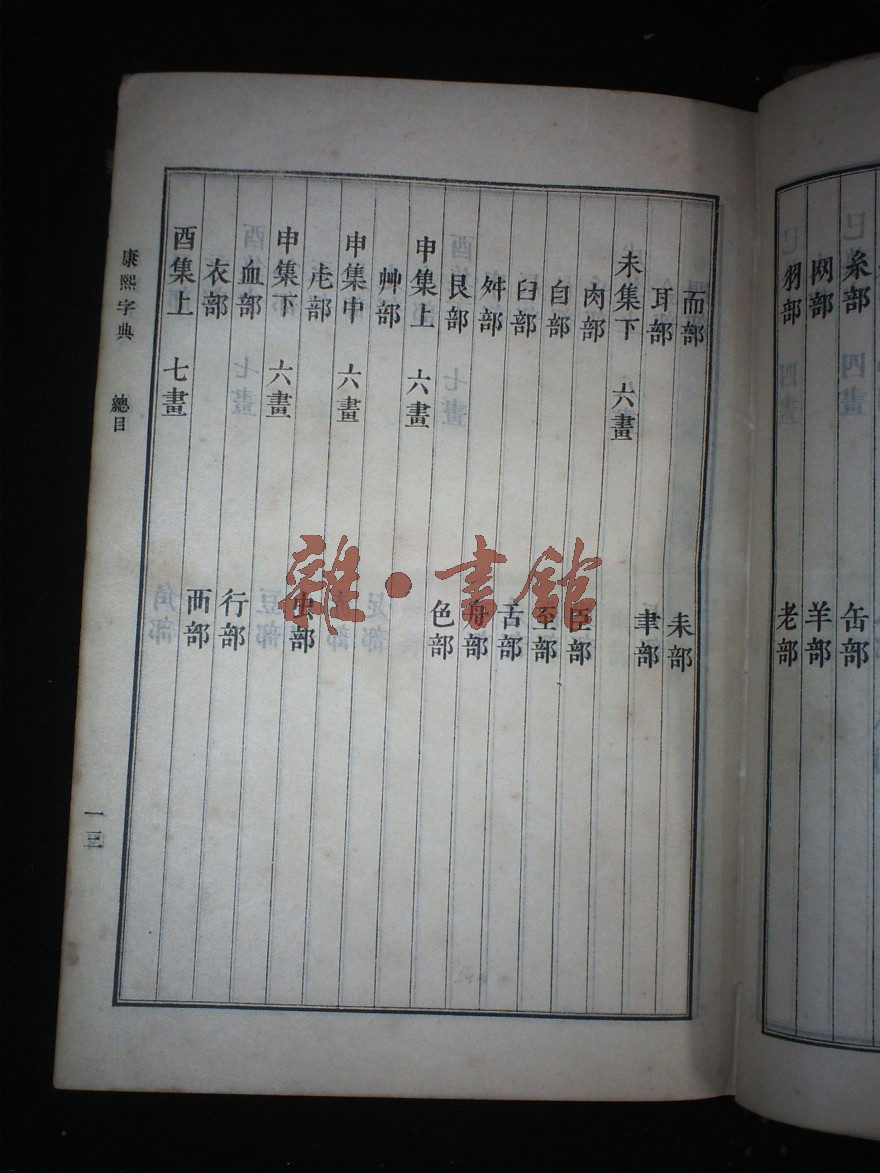 糸部 缶部
网部 羊部
羽部 老部
而部 耒部
耳部 聿部
未集下 六畫
肉部 臣部
自部 至部
臼部 舌部
舛部 舟部
艮部 色部
申集上 六畫
艸部
申集中 六畫
虍部 虫部
申集下 六畫
血部 行部
衣部 襾部
酉集上 七畫
康熙字典 總目 一三
雜·書館